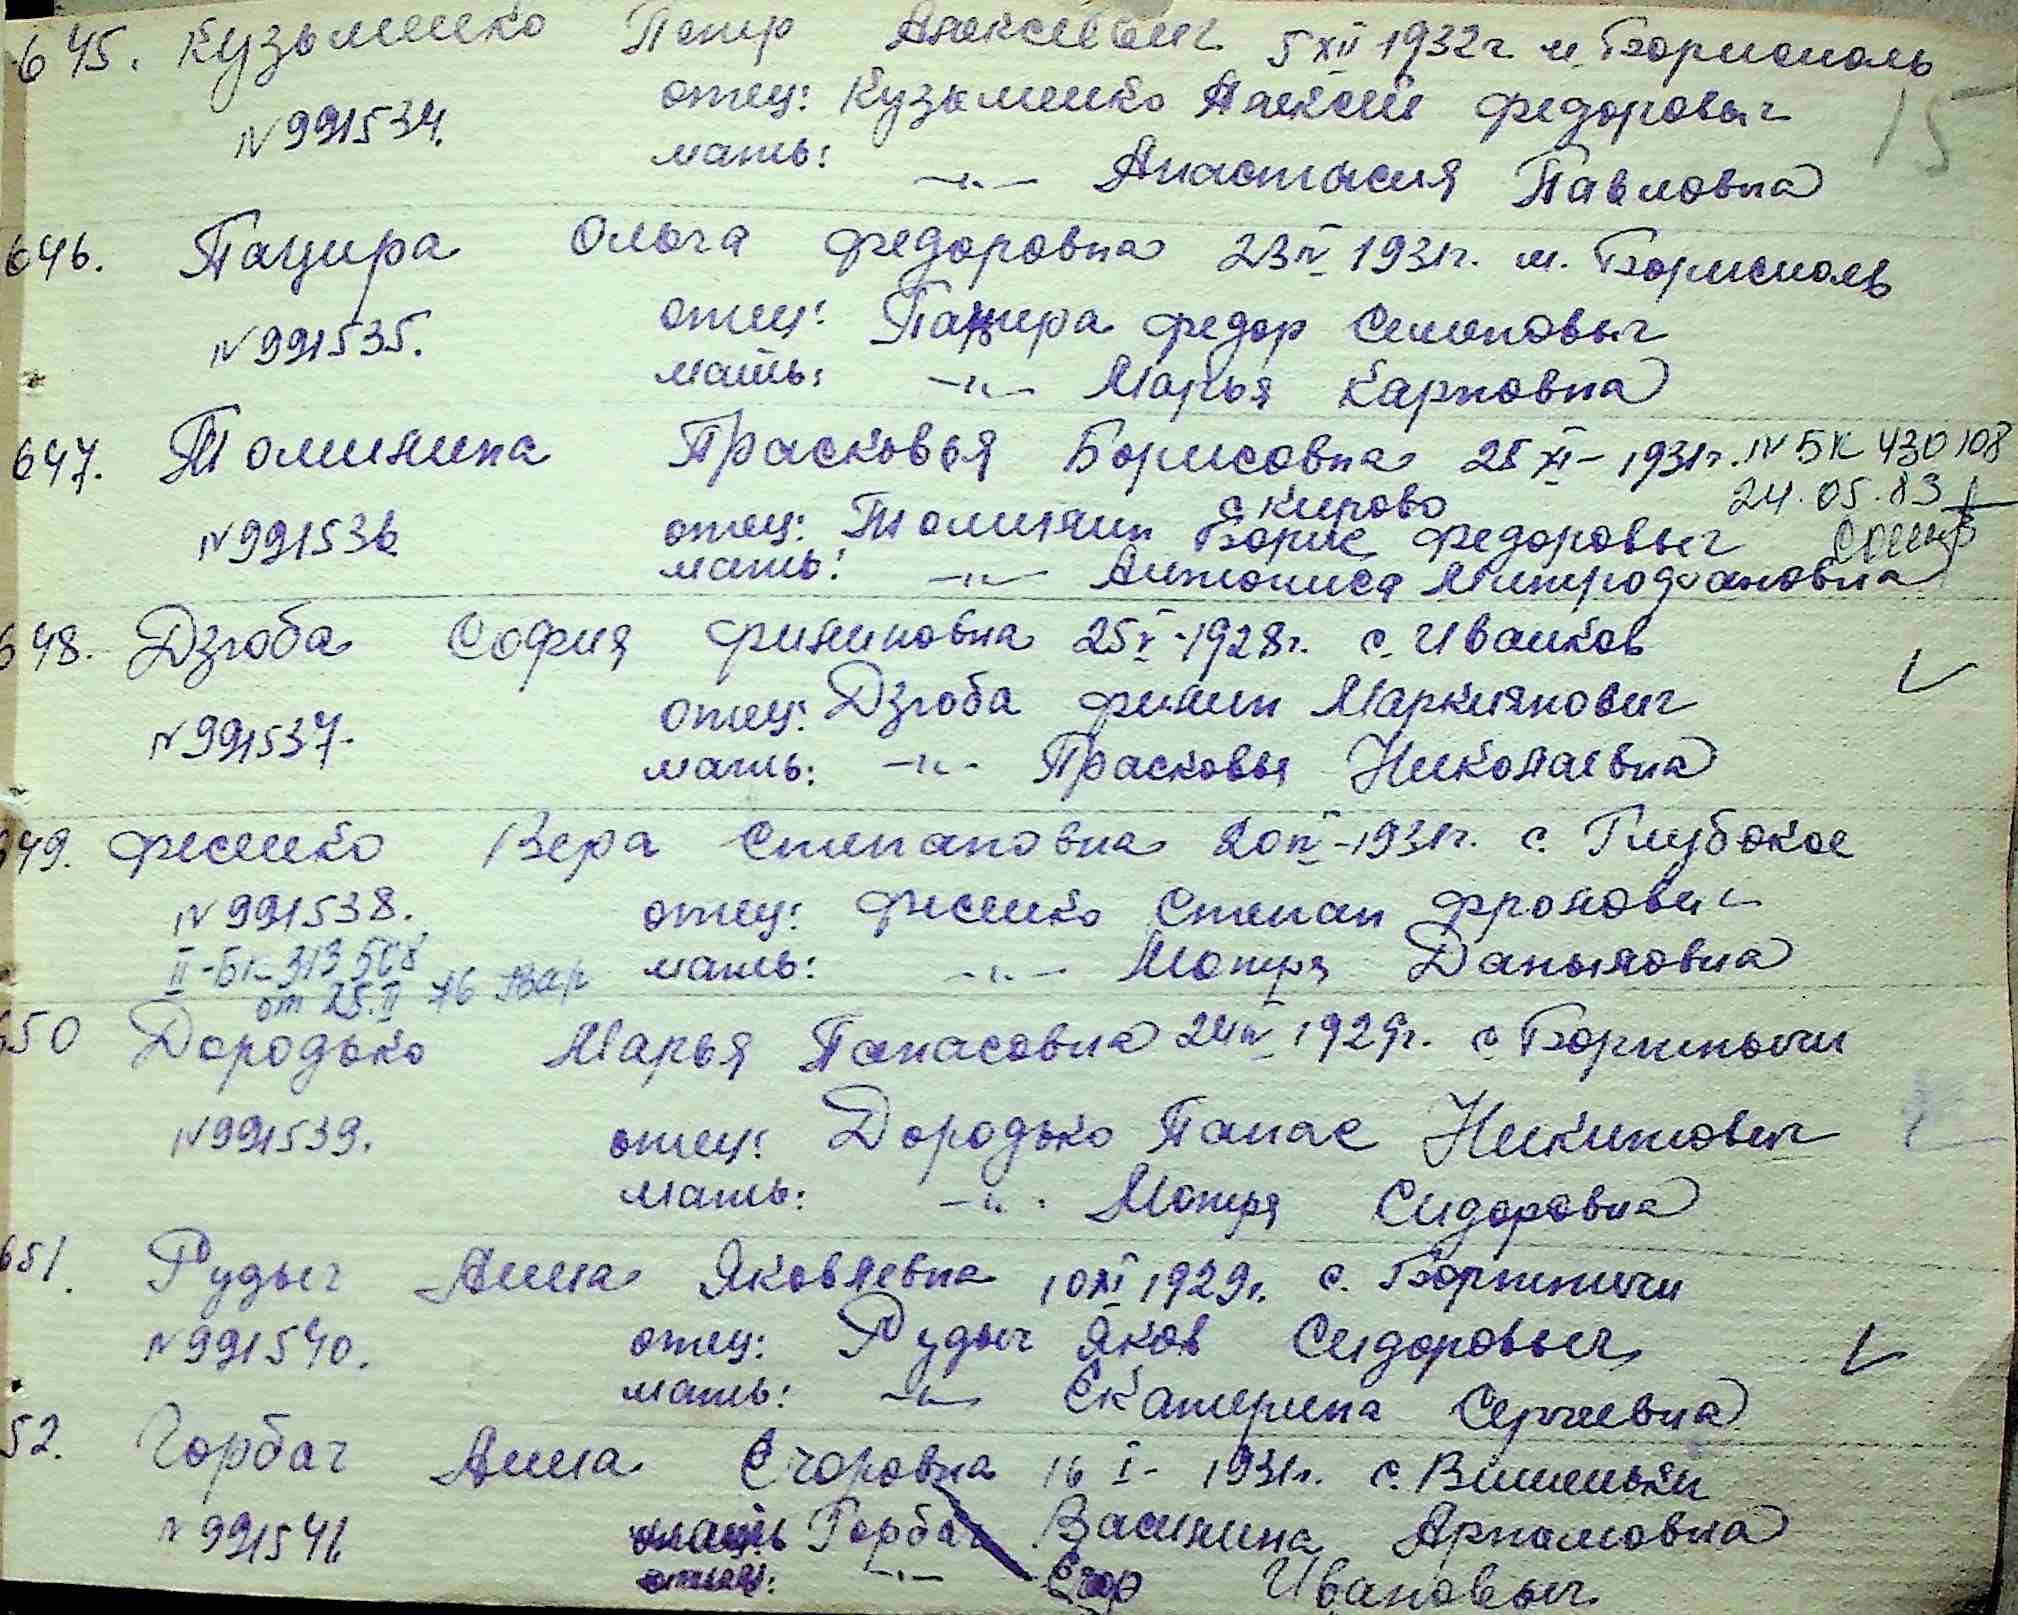 645. Кузьменко Петр Алексеевич 5 XII 1932 г. м. Борисполь
№ 991534. отец: Кузьменко Алексей Федорович 15
мать: —"— Анастасия Павловна
646. Пацира Ольга Федоровна 23 IV 1931г. м. Борисполь
№ 991535. отец: Пацира Федор Семенович
мать: —"— Марья Карповна
647. Прасковья Борисовна XI-1931г. № БК 430108
с Кирово 24.05.83
№ 991536 отец: Борис Федоровыч
мать: —"— Митрофановна
648. Дзюба София Филиповна 25 V-1928г. с. Иванков
отец: Дзюба Филип Маркиянович
№ 991537. мать: —"— Прасковья Николаевна
649. Фесенко Вера Степановна 20 IV-1931г. с. Глубокое
№ 991538. отец: Фесенко Степан Фролович
II-БК 313508 мать: —"— Мотря Даныловна
от 25.II 76
650 Дородько Марья Панасовна 1929г. с
№ 991539. отец: Дородько Панас Никитович
мать: —"— Мотря Сидоровна
651. Рудыч Анна Яковлевна 10 XI 1929г. с.
№ 991540. отец: Рудыч Яков Сидоровыч
мать: —"— Екатерина Сергеевна
52. Горбач Анна Егоровна 16 I- 1931г. с. Вишеньки
№ 991541 мать Горбач Василина Артамовна
отец: —"— Егор Ивановыч